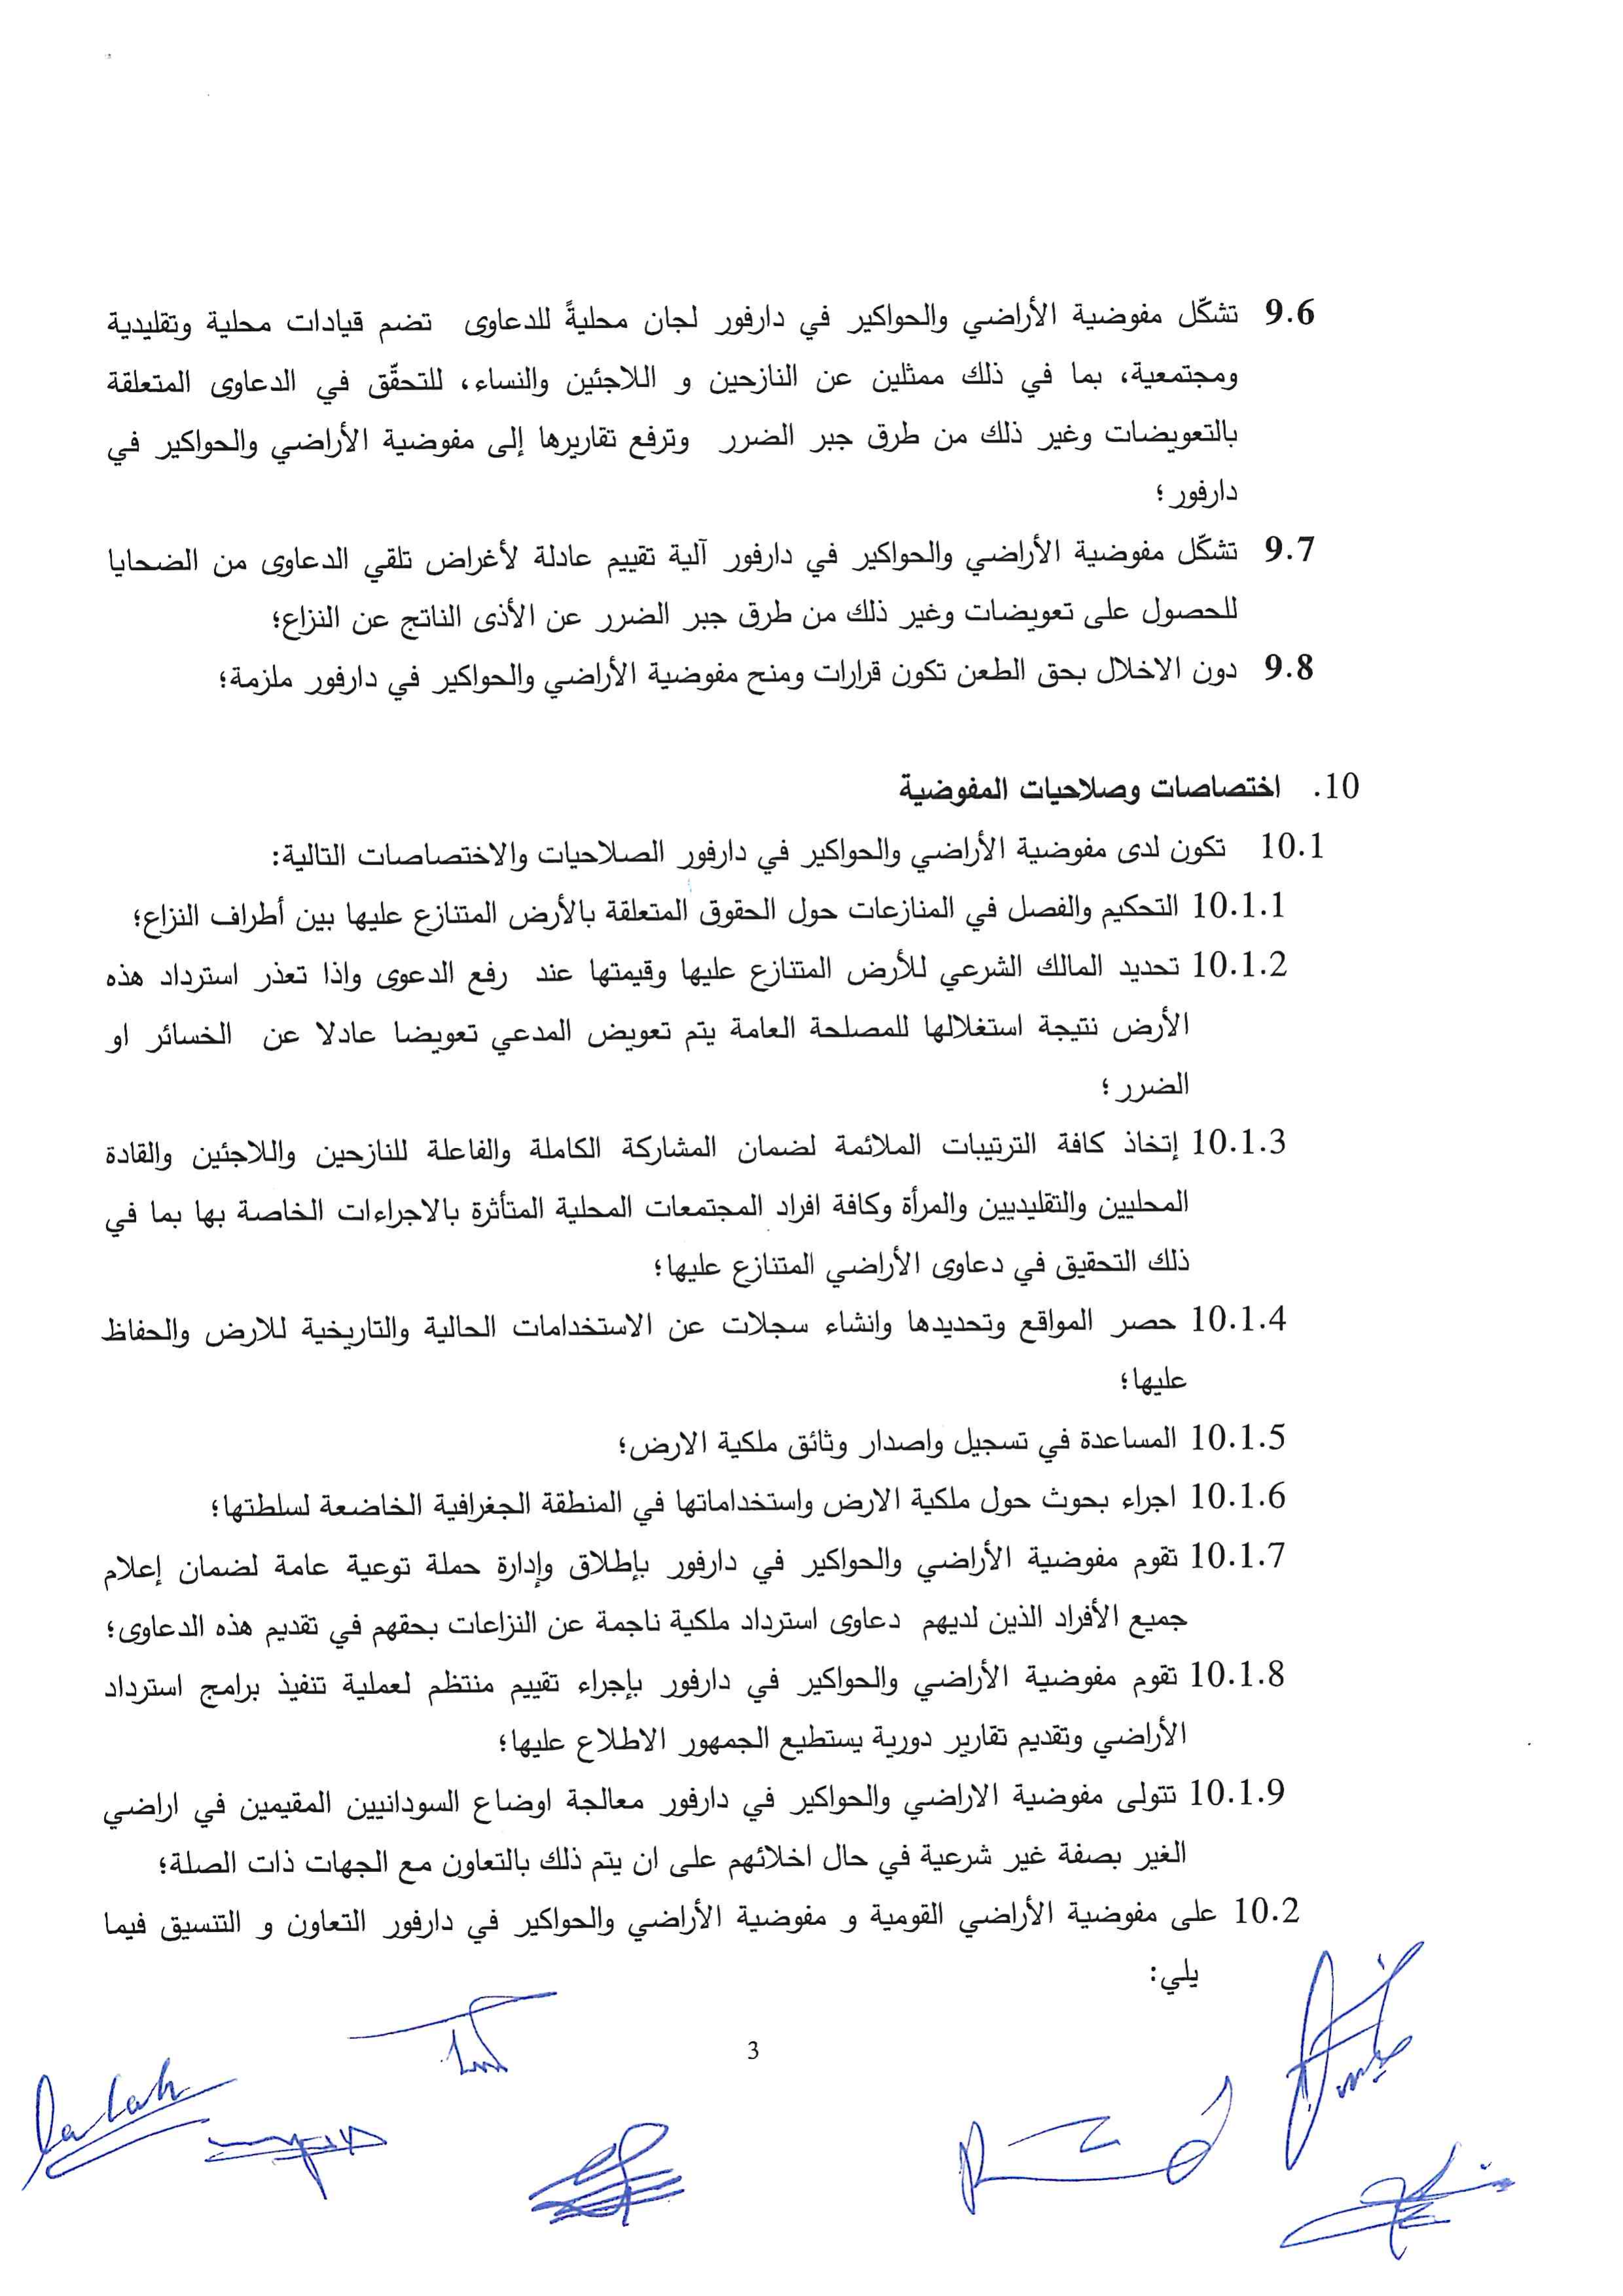 9.6 تشكّل مفوضية الأراضي والحواكير في دارفور لجان محليةً للدعاوى تضم قيادات محلية وتقليدية
ومجتمعية، بما في ذلك ممثلين عن النازحين و اللاجئين والنساء، للتحقّق في الدعاوى المتعلقة
بالتعويضات وغير ذلك من طرق جبر الضرر وترفع تقاريرها إلى مفوضية الأراضي والحواكير في
دارفور؛
9.7 تشكّل مفوضية الأراضي والحواكير في دارفور آلية تقييم عادلة لأغراض تلقي الدعاوى من الضحايا
للحصول على تعويضات وغير ذلك من طرق جبر الضرر عن الأذى الناتج عن النزاع؛
9.8 دون الاخلال بحق الطعن تكون قرارات ومنح مفوضية الأراضي والحواكير في دارفور ملزمة؛
10. اختصاصات وصلاحيات المفوضية
10.1 تكون لدى مفوضية الأراضي والحواكير في دارفور الصلاحيات والاختصاصات التالية:
10.1.1 التحكيم والفصل في المنازعات حول الحقوق المتعلقة بالأرض المتنازع عليها بين أطراف النزاع؛
10.1.2 تحديد المالك الشرعي للأرض المتنازع عليها وقيمتها عند رفع الدعوى واذا تعذر استرداد هذه
الأرض نتيجة استغلالها للمصلحة العامة يتم تعويض المدعي تعويضا عادلا عن الخسائر او
الضرر؛
10.1.3 إتخاذ كافة الترتيبات الملائمة لضمان المشاركة الكاملة والفاعلة للنازحين واللاجئين والقادة
المحليين والتقليديين والمرأة وكافة افراد المجتمعات المحلية المتأثرة بالاجراءات الخاصة بها بما في
ذلك التحقيق في دعاوى الأراضي المتنازع عليها؛
10.1.4 حصر المواقع وتحديدها وانشاء سجلات عن الاستخدامات الحالية والتاريخية للارض والحفاظ
عليها؛
10.1.5 المساعدة في تسجيل واصدار وثائق ملكية الارض؛
10.1.6 اجراء بحوث حول ملكية الارض واستخداماتها في المنطقة الجغرافية الخاضعة لسلطتها؛
10.1.7 تقوم مفوضية الأراضي والحواكير في دارفور بإطلاق وإدارة حملة توعية عامة لضمان إعلام
جميع الأفراد الذين لديهم دعاوى استرداد ملكية ناجمة عن النزاعات بحقهم في تقديم هذه الدعاوى؛
10.1.8 تقوم مفوضية الأراضي والحواكير في دارفور بإجراء تقييم منتظم لعملية تنفيذ برامج استرداد
الأراضي وتقديم تقارير دورية يستطيع الجمهور الاطلاع عليها؛
10.1.9 تتولى مفوضية الاراضي والحواكير في دارفور معالجة اوضاع السودانيين المقيمين في اراضي
الغير بصفة غير شرعية في حال اخلائهم على ان يتم ذلك بالتعاون مع الجهات ذات الصلة؛
10.2 على مفوضية الأراضي القومية و مفوضية الأراضي والحواكير في دارفور التعاون و التنسيق فيما
يلي:
3